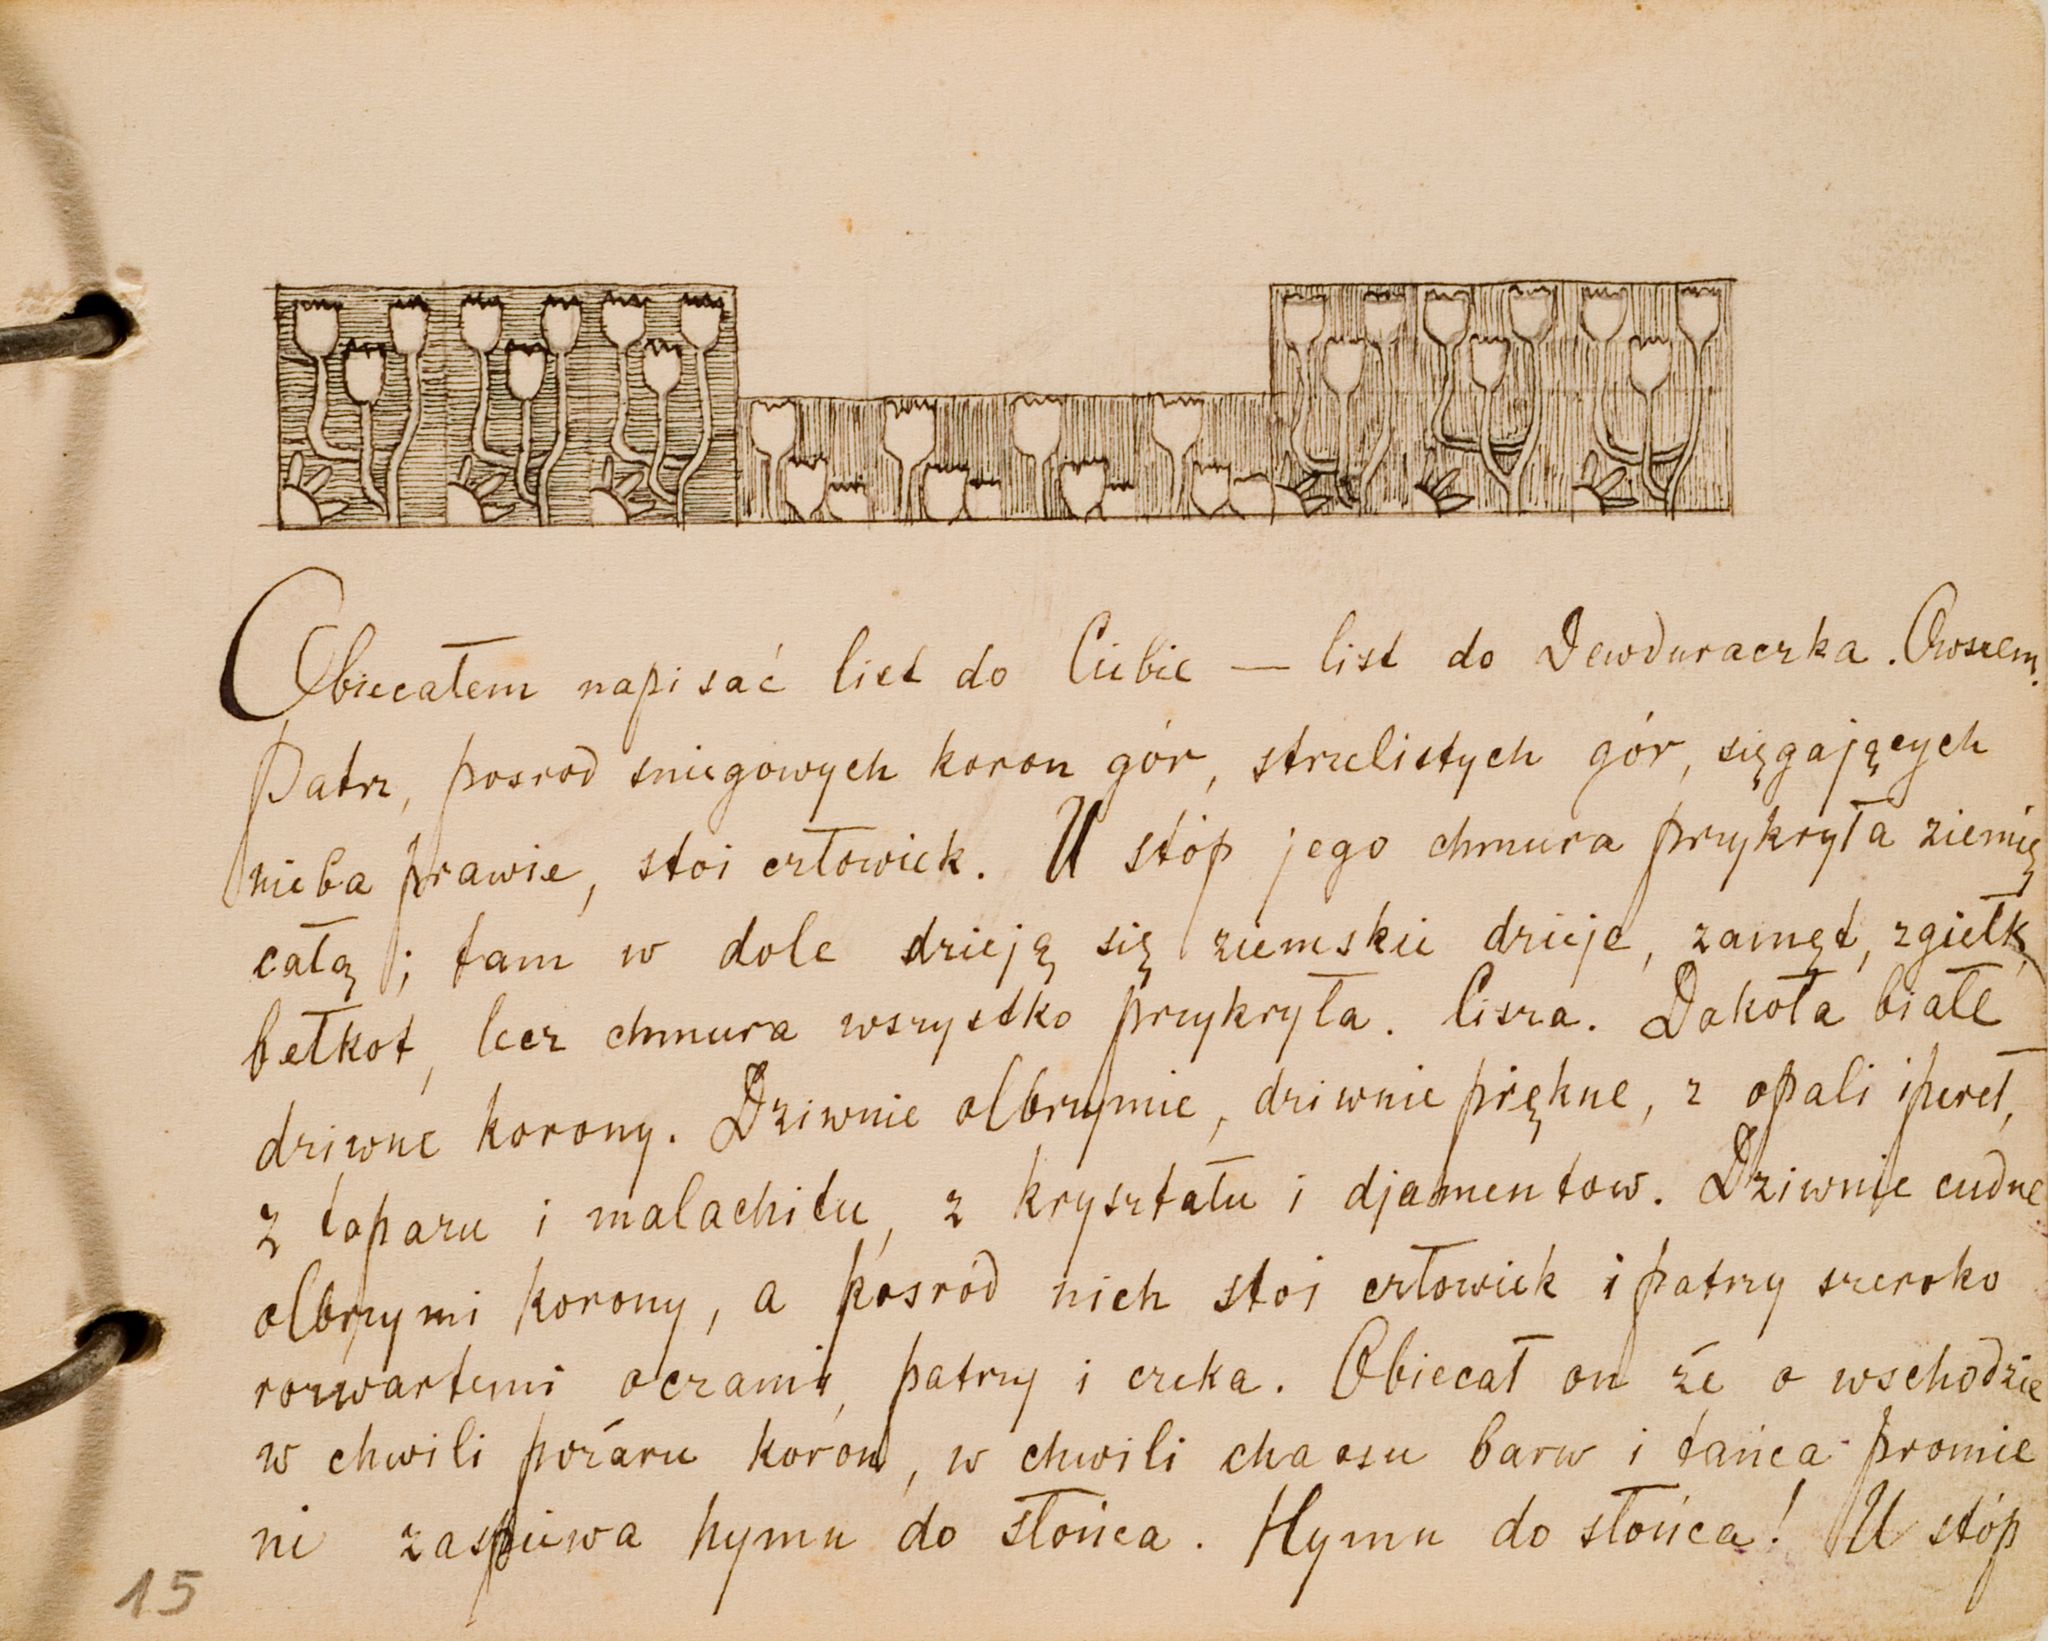 Obiecałem napisać list do Ciebie — list do Dewduraczka. Owszem.
Patrz, posrod sniegowych koron gór, strzelistych gór, sięgających
nieba prawie, stoi człowiek. U stóp jego chmura przykryła ziemię
całą; tam w dole dzieją się ziemskie dzieje, zamęt, zgiełk,
bełkot, lecz chmura wszystko przykryła. Cisza. Dokoła białe
dziwne korony. Dziwnie olbrzymie, dziwnie piękne, z opali i pereł,
z topazu i malachitu, z kryształu i djamentow. Dziwnie cudne
olbrzymi korony, a posród nich stoi człowiek i patrzy szeroko
rozwartemi oczami, patrzy i czeka. Obiecał on że o wschodzie
w chwili pożaru koron, w chwili chaosu barw i tańca promie
ni zaspiewa hymn do słońca. Hymn do słońca! U stóp
15